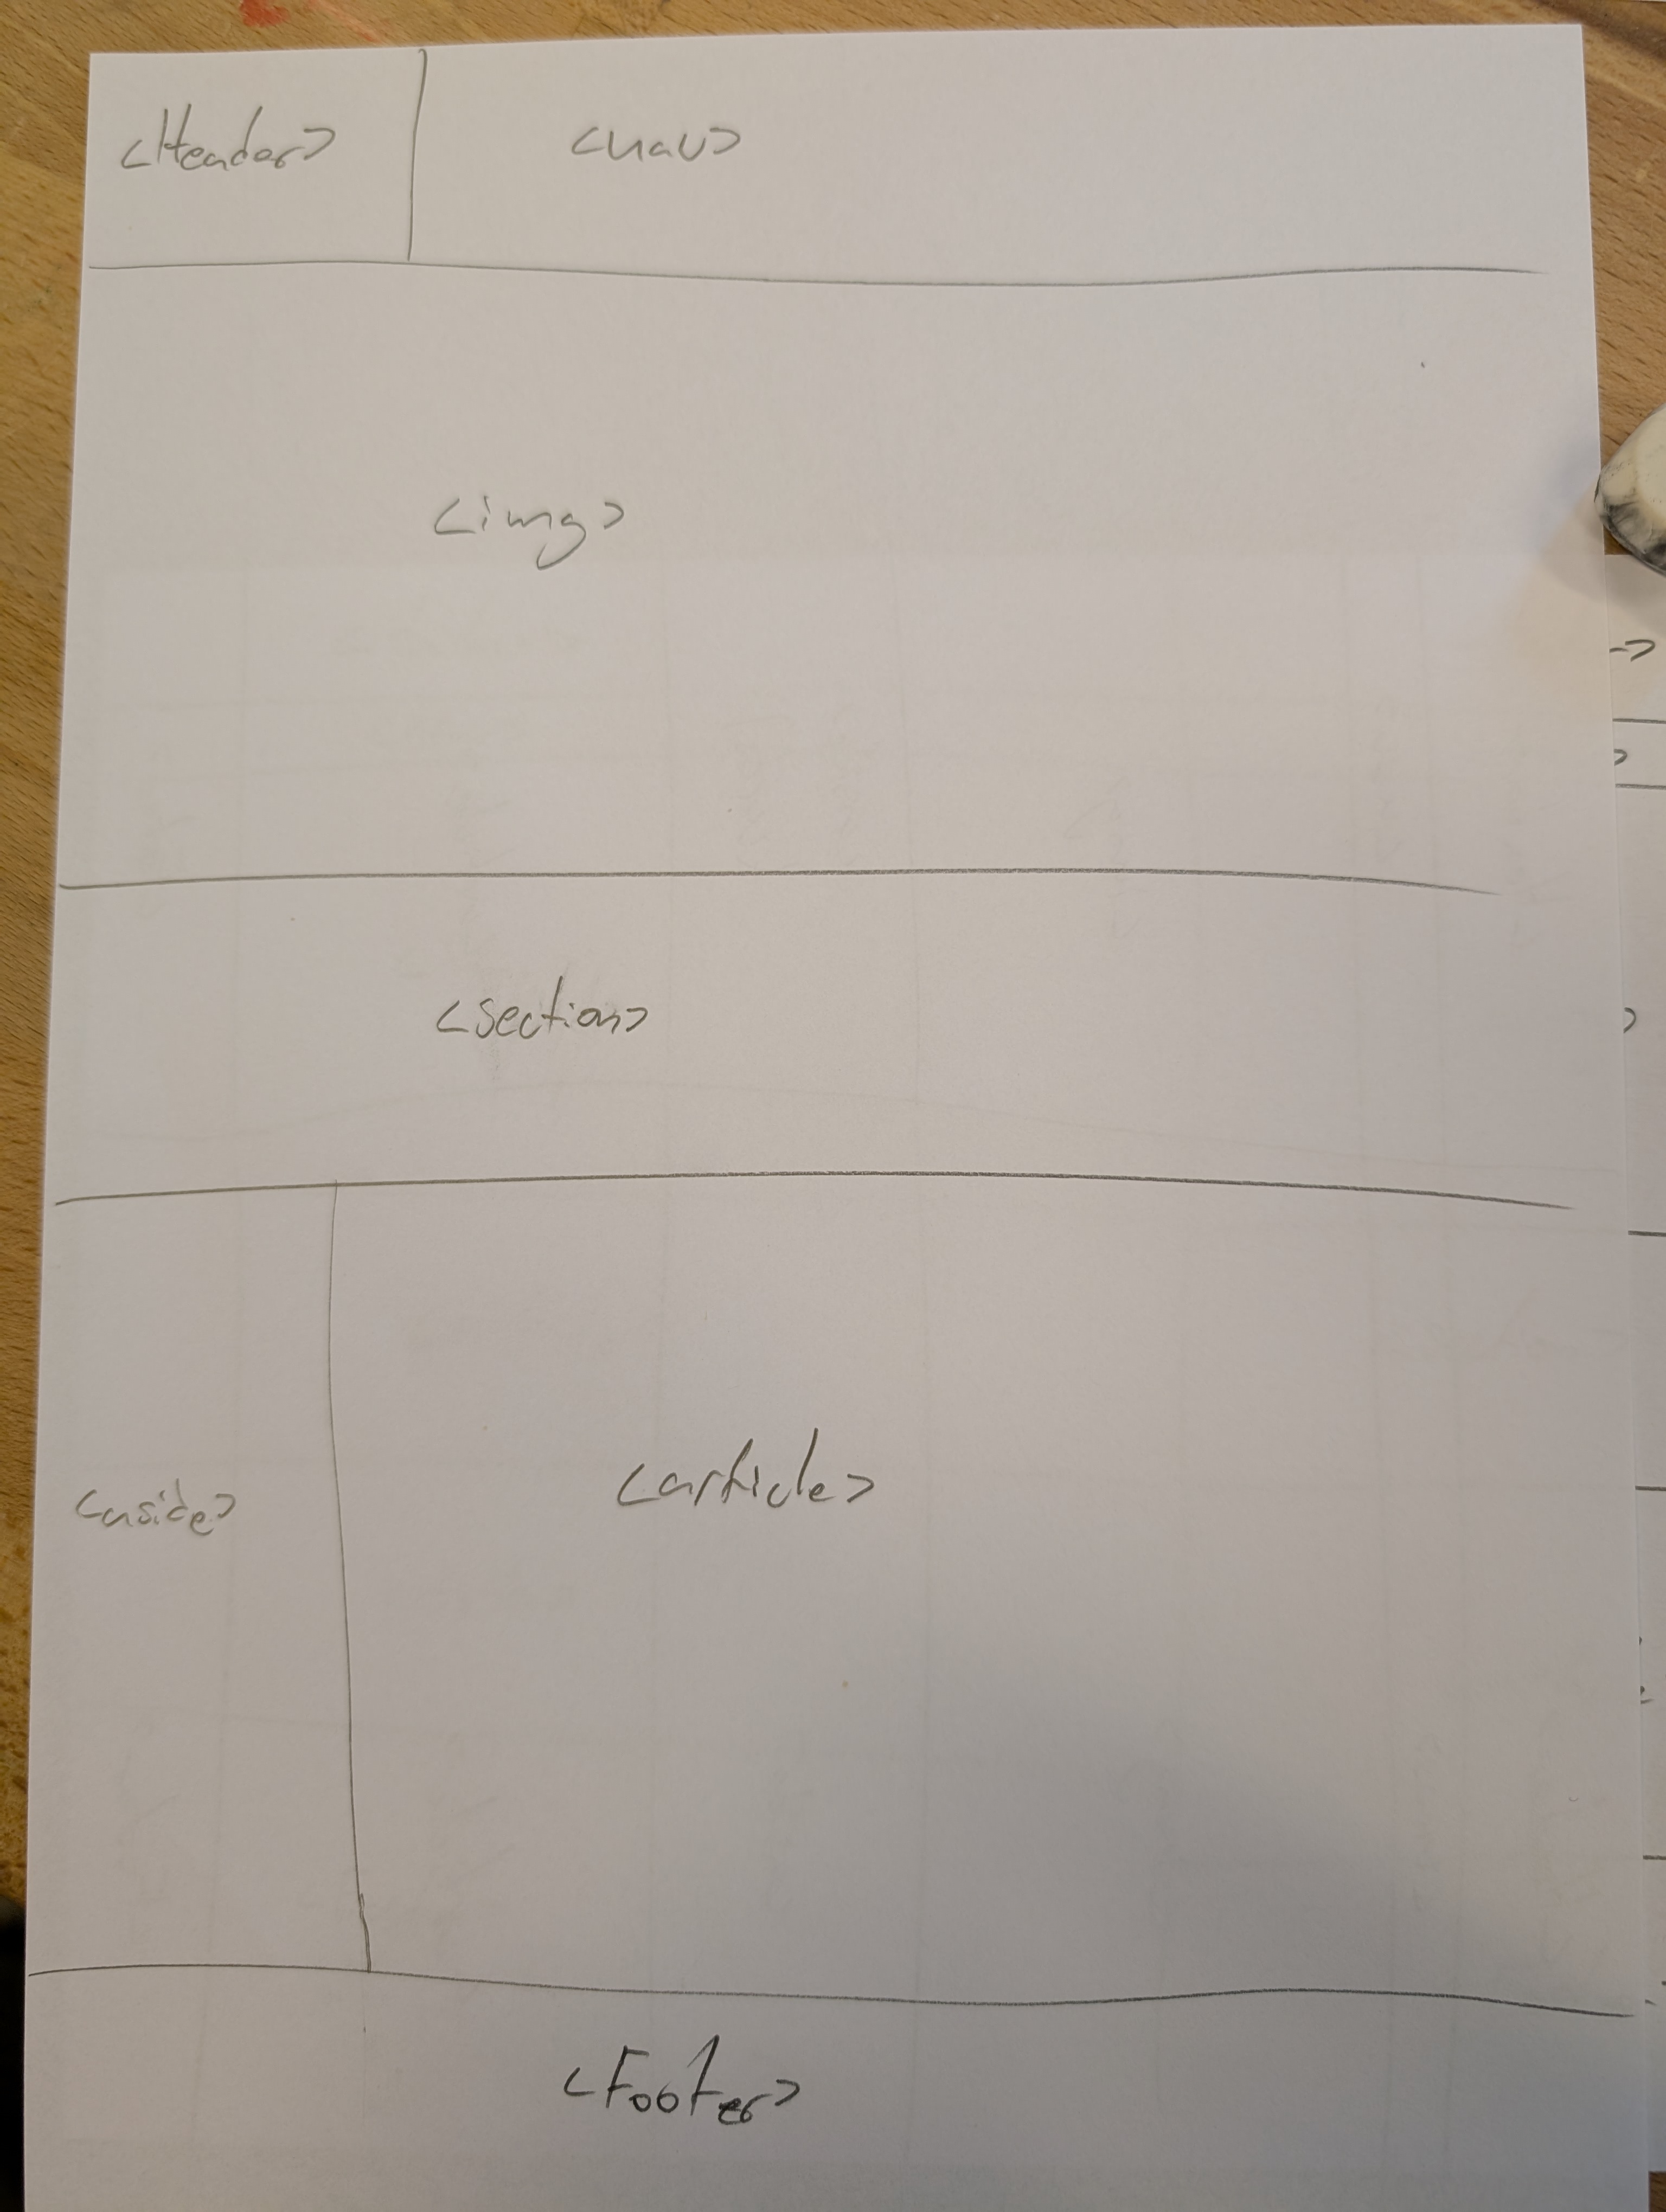 <Header>
<nav>
<img>
<section>
<aside>
<article>
<Footer>